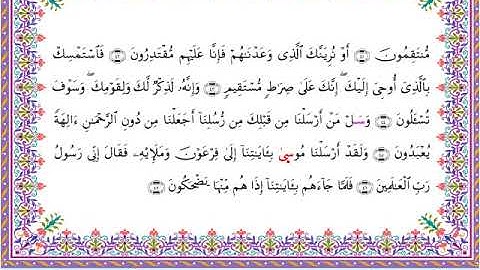 مُّنتَقِمُونَ ٤١ أَوْ نُرِيَنَّكَ ٱلَّذِى وَعَدْنَٰهُمْ فَإِنَّا عَلَيْهِم مُّقْتَدِرُونَ ٤٢ فَٱسْتَمْسِكْ
بِٱلَّذِىٓ أُوحِىَ إِلَيْكَ ۖ إِنَّكَ عَلَىٰ صِرَٰطٍ مُّسْتَقِيمٍ ٤٣ وَإِنَّهُۥ لَذِكْرٌ لَّكَ وَلِقَوْمِكَ ۖ وَسَوْفَ
تُسْـَٔلُونَ ٤٤ وَسَلْ مَنْ أَرْسَلْنَا مِن قَبْلِكَ مِن رُّسُلِنَآ أَجَعَلْنَا مِن دُونِ ٱلرَّحْمَٰنِ ءَالِهَةً
يُعْبَدُونَ ٤٥ وَلَقَدْ أَرْسَلْنَا مُوسَىٰ بِـَٔايَٰتِنَآ إِلَىٰ فِرْعَوْنَ وَمَلَإِي۟هِۦ فَقَالَ إِنِّى رَسُولُ
رَبِّ ٱلْعَٰلَمِينَ ٤٦ فَلَمَّا جَآءَهُم بِـَٔايَٰتِنَآ إِذَا هُم مِّنْهَا يَضْحَكُونَ ٤٧